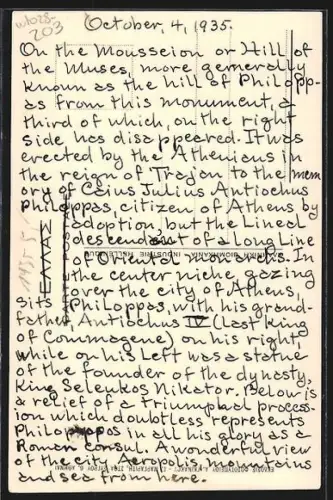 wto28-
203
October, 4, 1935.
On the Mousseion or Hill of
the Muses, more generally
known as the hill of Philopp-
as from this monument, a
third of which, on the right
side, has disappeared. It was
erected by the Athenians in
the reign of Trajan to the mem
ory of Caius Julius Antiochus
Philoppas, citizen of Athens by
adoption, but the Lineal
descendant of a Long Line
of
In
the center niche gazing
over the city of Athens,
sits Philoppas, with his grand-
father, Antiochus IV (Last king
of Commagene) on his right,
while on his Left was a statue
of the founder of the dynasty,
King Seleukos Nikator. Below is
a relief of a triumphal process-
ion which doubtless represents
Philoppapos in all his glory as a
Roman consul. A wonderful view
of the city Acropolis mountains
and sea from here.
ΕΛΛΑΣ